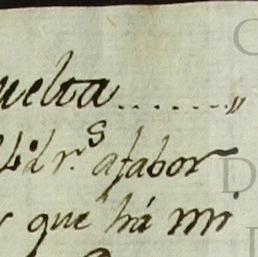 uelta.......,,
4.d r.s afabor
que há mi